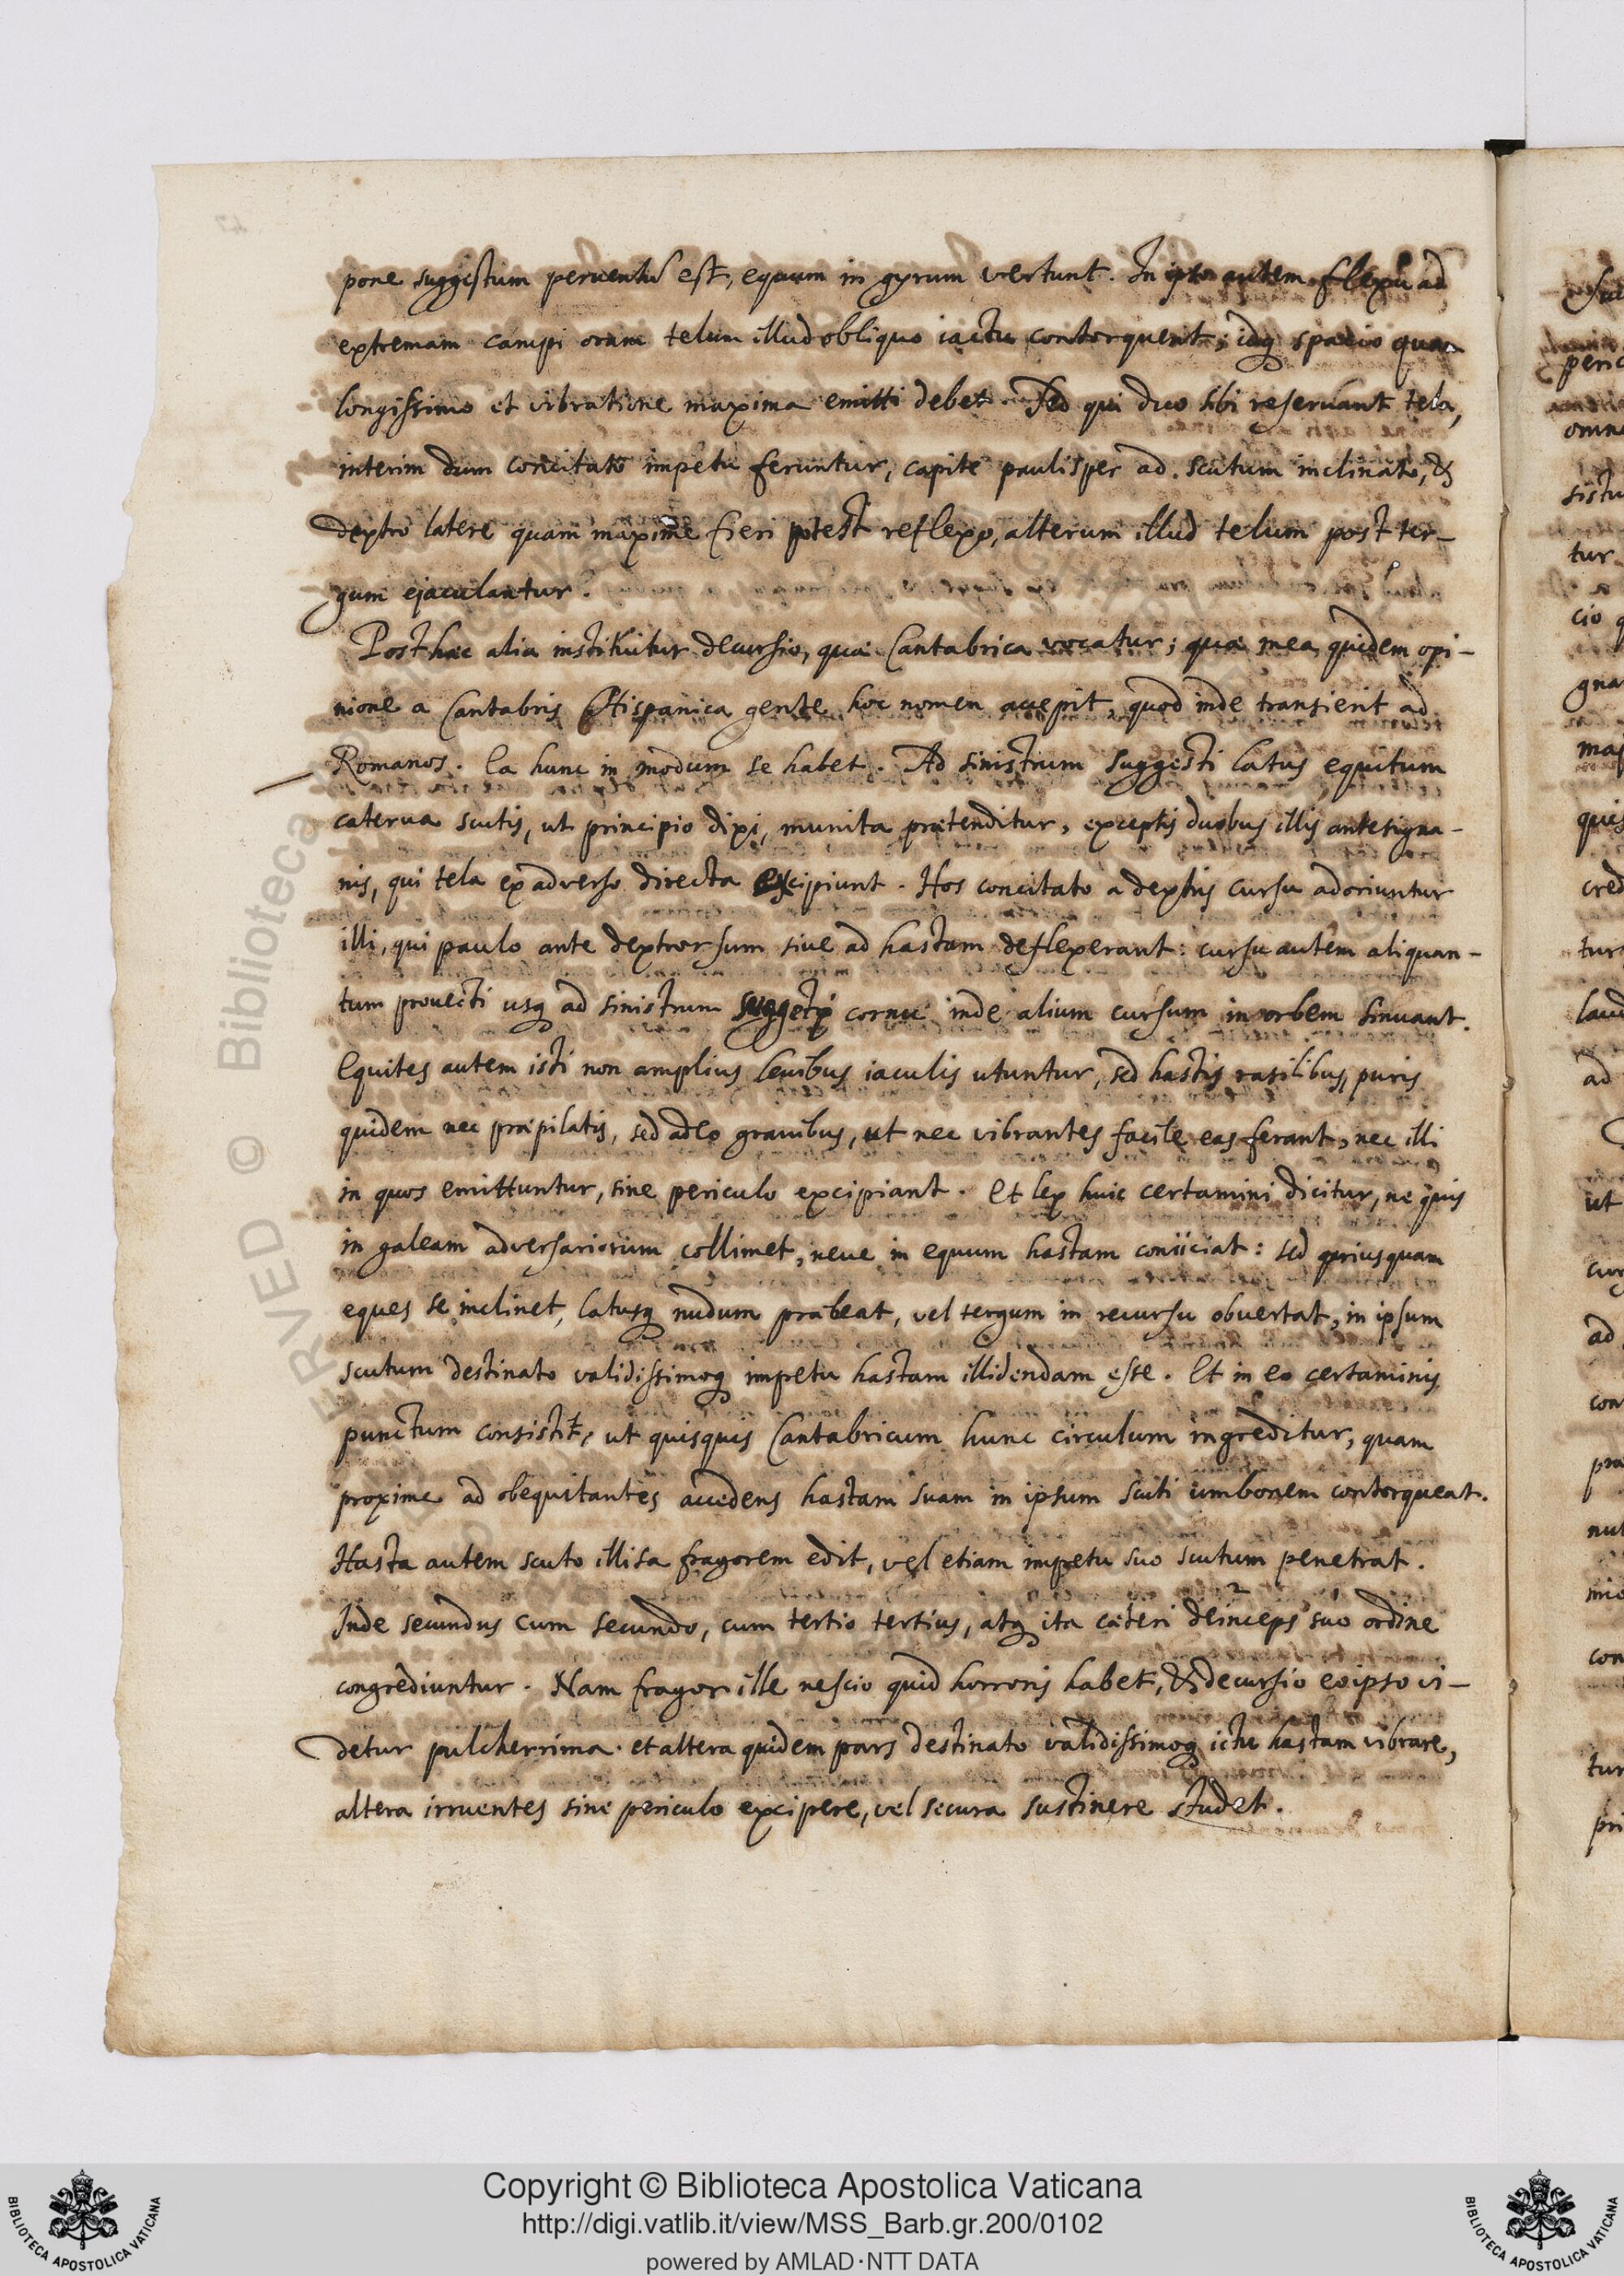 pone suggestum peruentū est, equum in gyrum vertunt. In ipso autem flexu ad
extremam campi oram telum illud obliquo iactu contorquent; idq; spatio quam
longissimo et vibratione maxima emitti debet. Sed qui duo sibi reservant tela,
interim dum concitato impetu feruntur, capite paulisper ad scutum inclinato, &
dextro latere quam maxime fieri potest reflexo, alterum illud telum post ter-
gum ejaculantur.
Post hac alia instituitur decursio, quæ Cantabrica vocatur; quæ mea quidem opi-
nione a Cantabris Hispanica gente hoc nomen accepit, quod inde transierit ad
Romanos. Ea hunc in modum se habet. Ad sinistrum suggesti latus equitum
caterva scutis, ut principio dixi, munita prætenditur, exceptis duobus illis antesigna-
nis, qui tela ex adverso directa excipiunt. Hos concitato a dextris cursu adoriuntur
illi, qui paulo ante dextrorsum sive ad hastam deflexerant: cursu autem aliquan-
tum provecti usq; ad sinistrum suggesti cornu inde alium cursum in orbem sinuant.
Equites autem isti non amplius levibus iaculis utuntur, sed hastis rasilibus, puris
quidem nec præpilatis, sed adeo gravibus, ut nec vibrantes facile eas ferant, nec illi
in quos emittuntur, sine periculo excipiant. Et lex huic certamini dicitur, ne quis
in galeam adversariorum collimet, neve in equum hastam coniiciat: sed priusquam
eques se inclinet, latusq; nudum præbeat, vel tergum in recursu obvertat, in ipsum
scutum destinato validissimoq; impetu hastam illidendam esse. Et in eo certaminis
punctum consistit, ut quisquis Cantabricum hunc circulum ingreditur, quam
proxime ad obequitantes accedens hastam suam in ipsum scuti umbonem contorqueat.
Hasta autem scuto illisa fragorem edit, vel etiam impetu suo scutum penetrat.
Inde secundus cum secundo, cum tertio tertius, atq; ita cæteri deinceps suo ordine
congrediuntur. Nam fragor ille nescio quid horroris habet, & decursio eo ipso vi-
detur pulcherrima. et altera quidem pars destinato validissimoq; ictu hastam vibrare,
altera irruentes sine periculo excipere, vel secura sustinere studet.
Copyright © Biblioteca Apostolica Vaticana
http://digi.vatlib.it/view/MSS_Barb.gr.200/0102
powered by AMLAD·NTT DATA